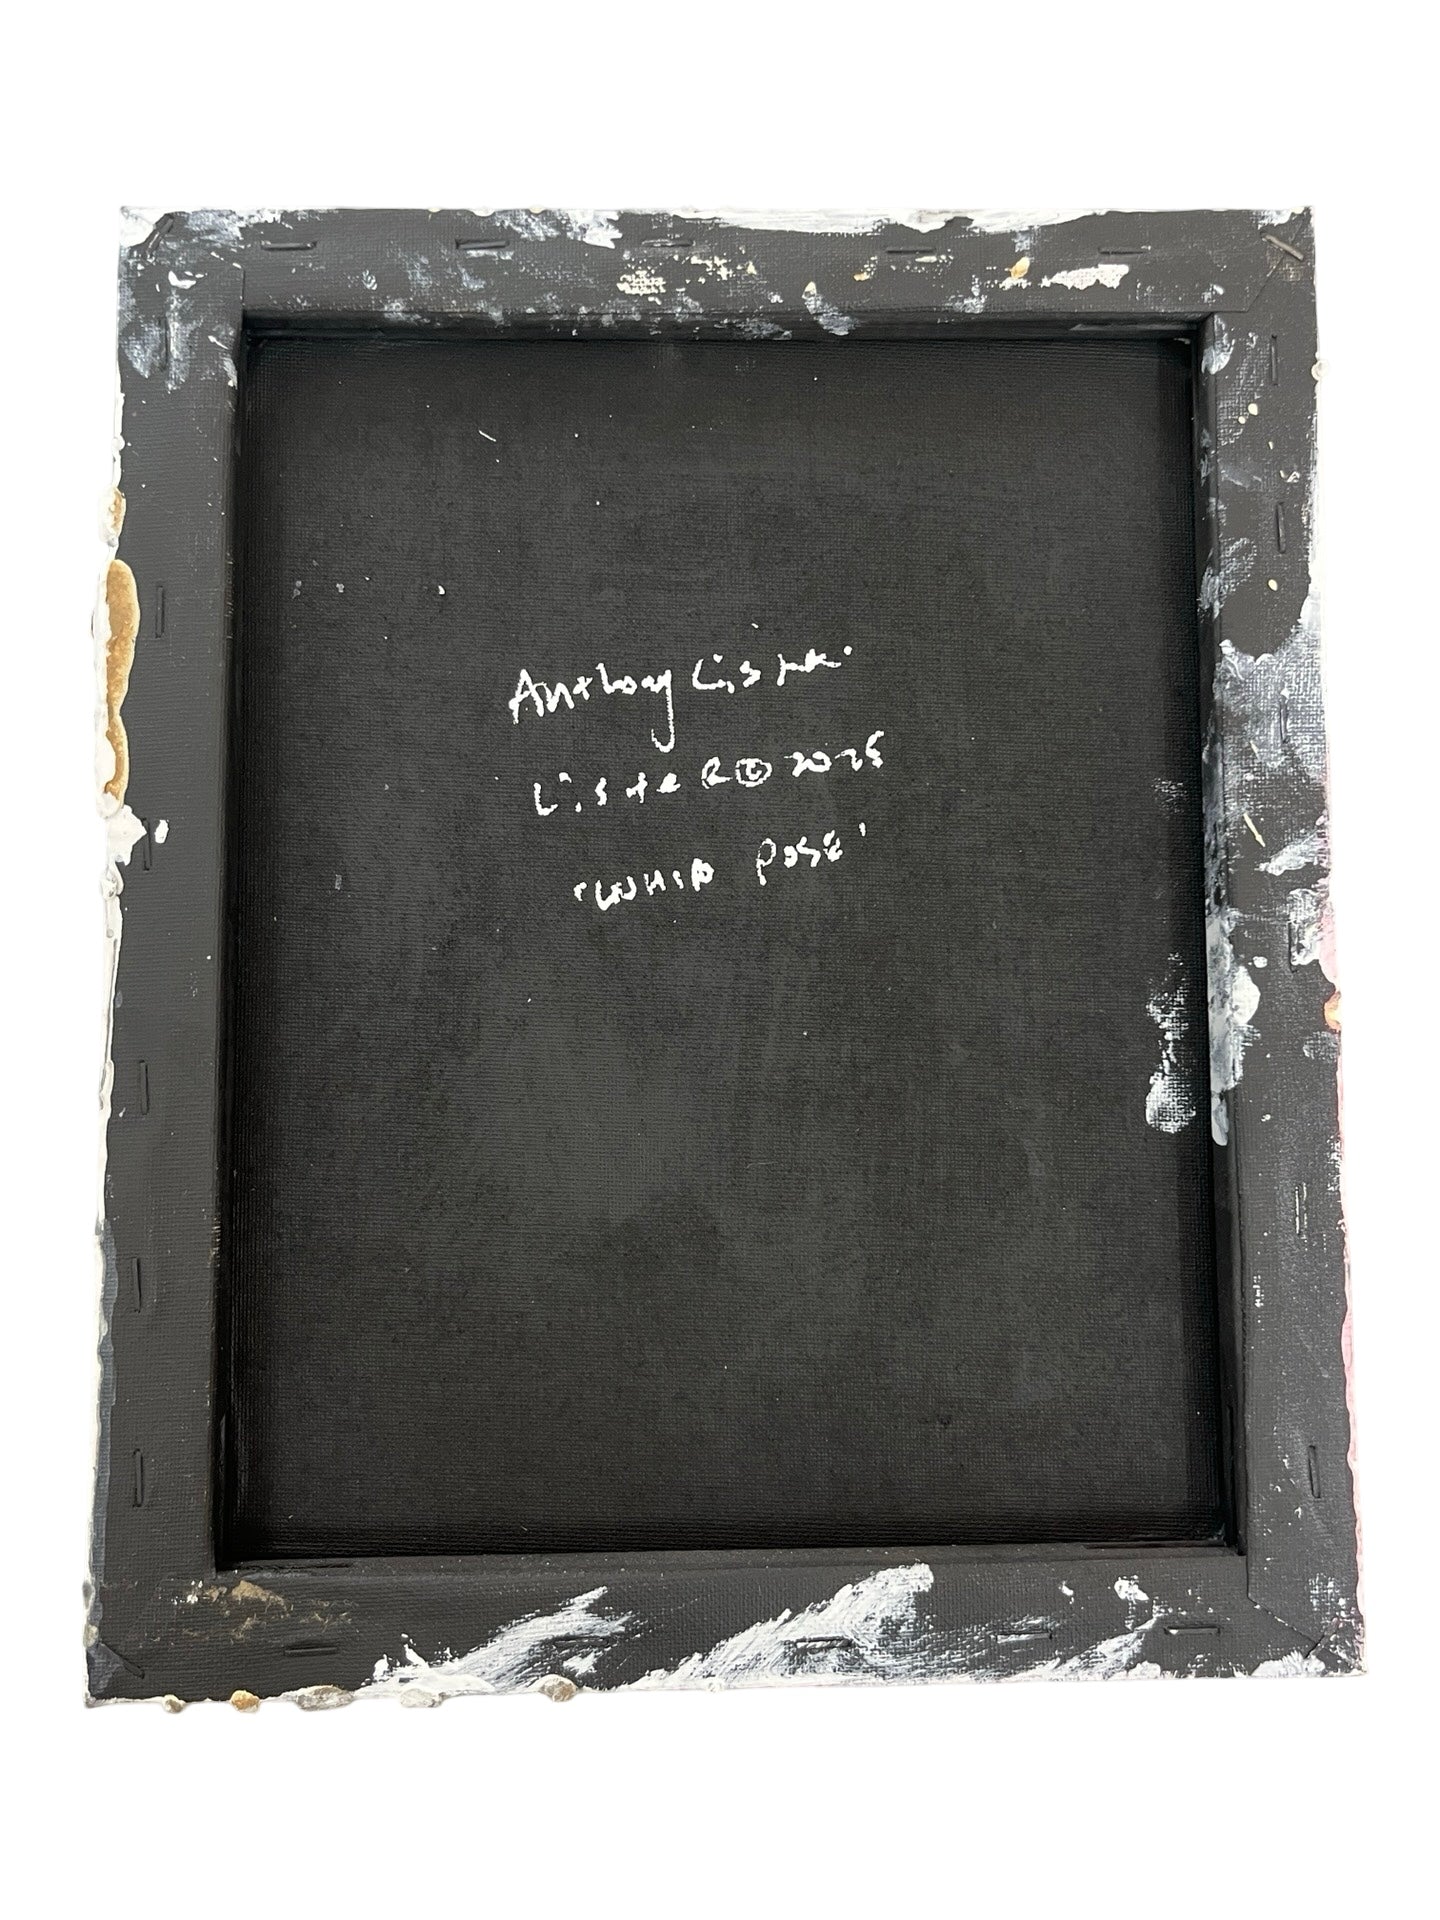 Anthony Lister.
Lister © 2025
'WHIP POSE'